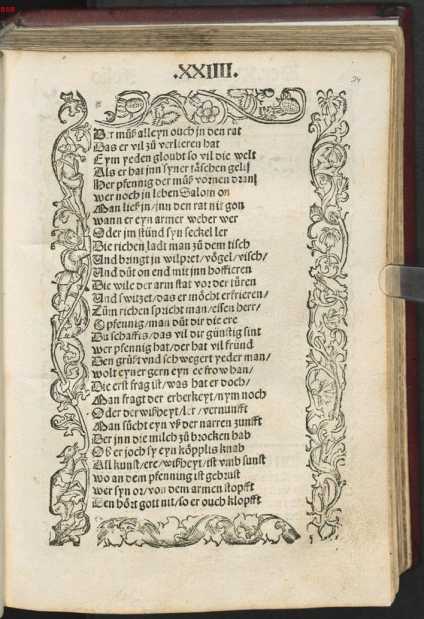 .XXIIII.
24
Der můß alleyn ouch jn den rat
Das er vil zů verlieren hat
Eym yeden gloubt so vil die welt
Als er hat jnn syner täschen gelt
Her pfennig der můß vornen dran
wer noch jn leben Salomon
Man ließ jn jnn den rat nit gon
wann er eyn armer weber wer
Oder jm stünd syn seckel ler
Die richen ladt man zů dem tisch
Und bringt jn wilpret/vögel/visch/
Und důt on end mit jnn hoffieren
Die wile der arm stat vor der türen
Und switzet/das er möcht erfrieren/
Zům richen spricht man/essen herr/
O pfennig/man důt dir die ere
Du schaffst/das vil dir günstig sint
wer pfennig hat/der hat vil fründ
Den grüßt vnd schwegert yeder man/
wolt eyner gern eyn ee frow han/
Die erst frag ist/was hat er doch/
Man fragt der erberkeyt/nym noch
Oder der wißheyt/ler/vernunfft
Man sůcht eyn vß der narren zunfft
Der jnn die milch zů brocken hab
Ob er joch sy eyn köpplis knab
All kunst/ere/wißheyt/ist vmb sunst
wo an dem pfenning ist gebrust
wer syn or/vor dem armen stopfft
Den hört gott nit/so er ouch klopfft